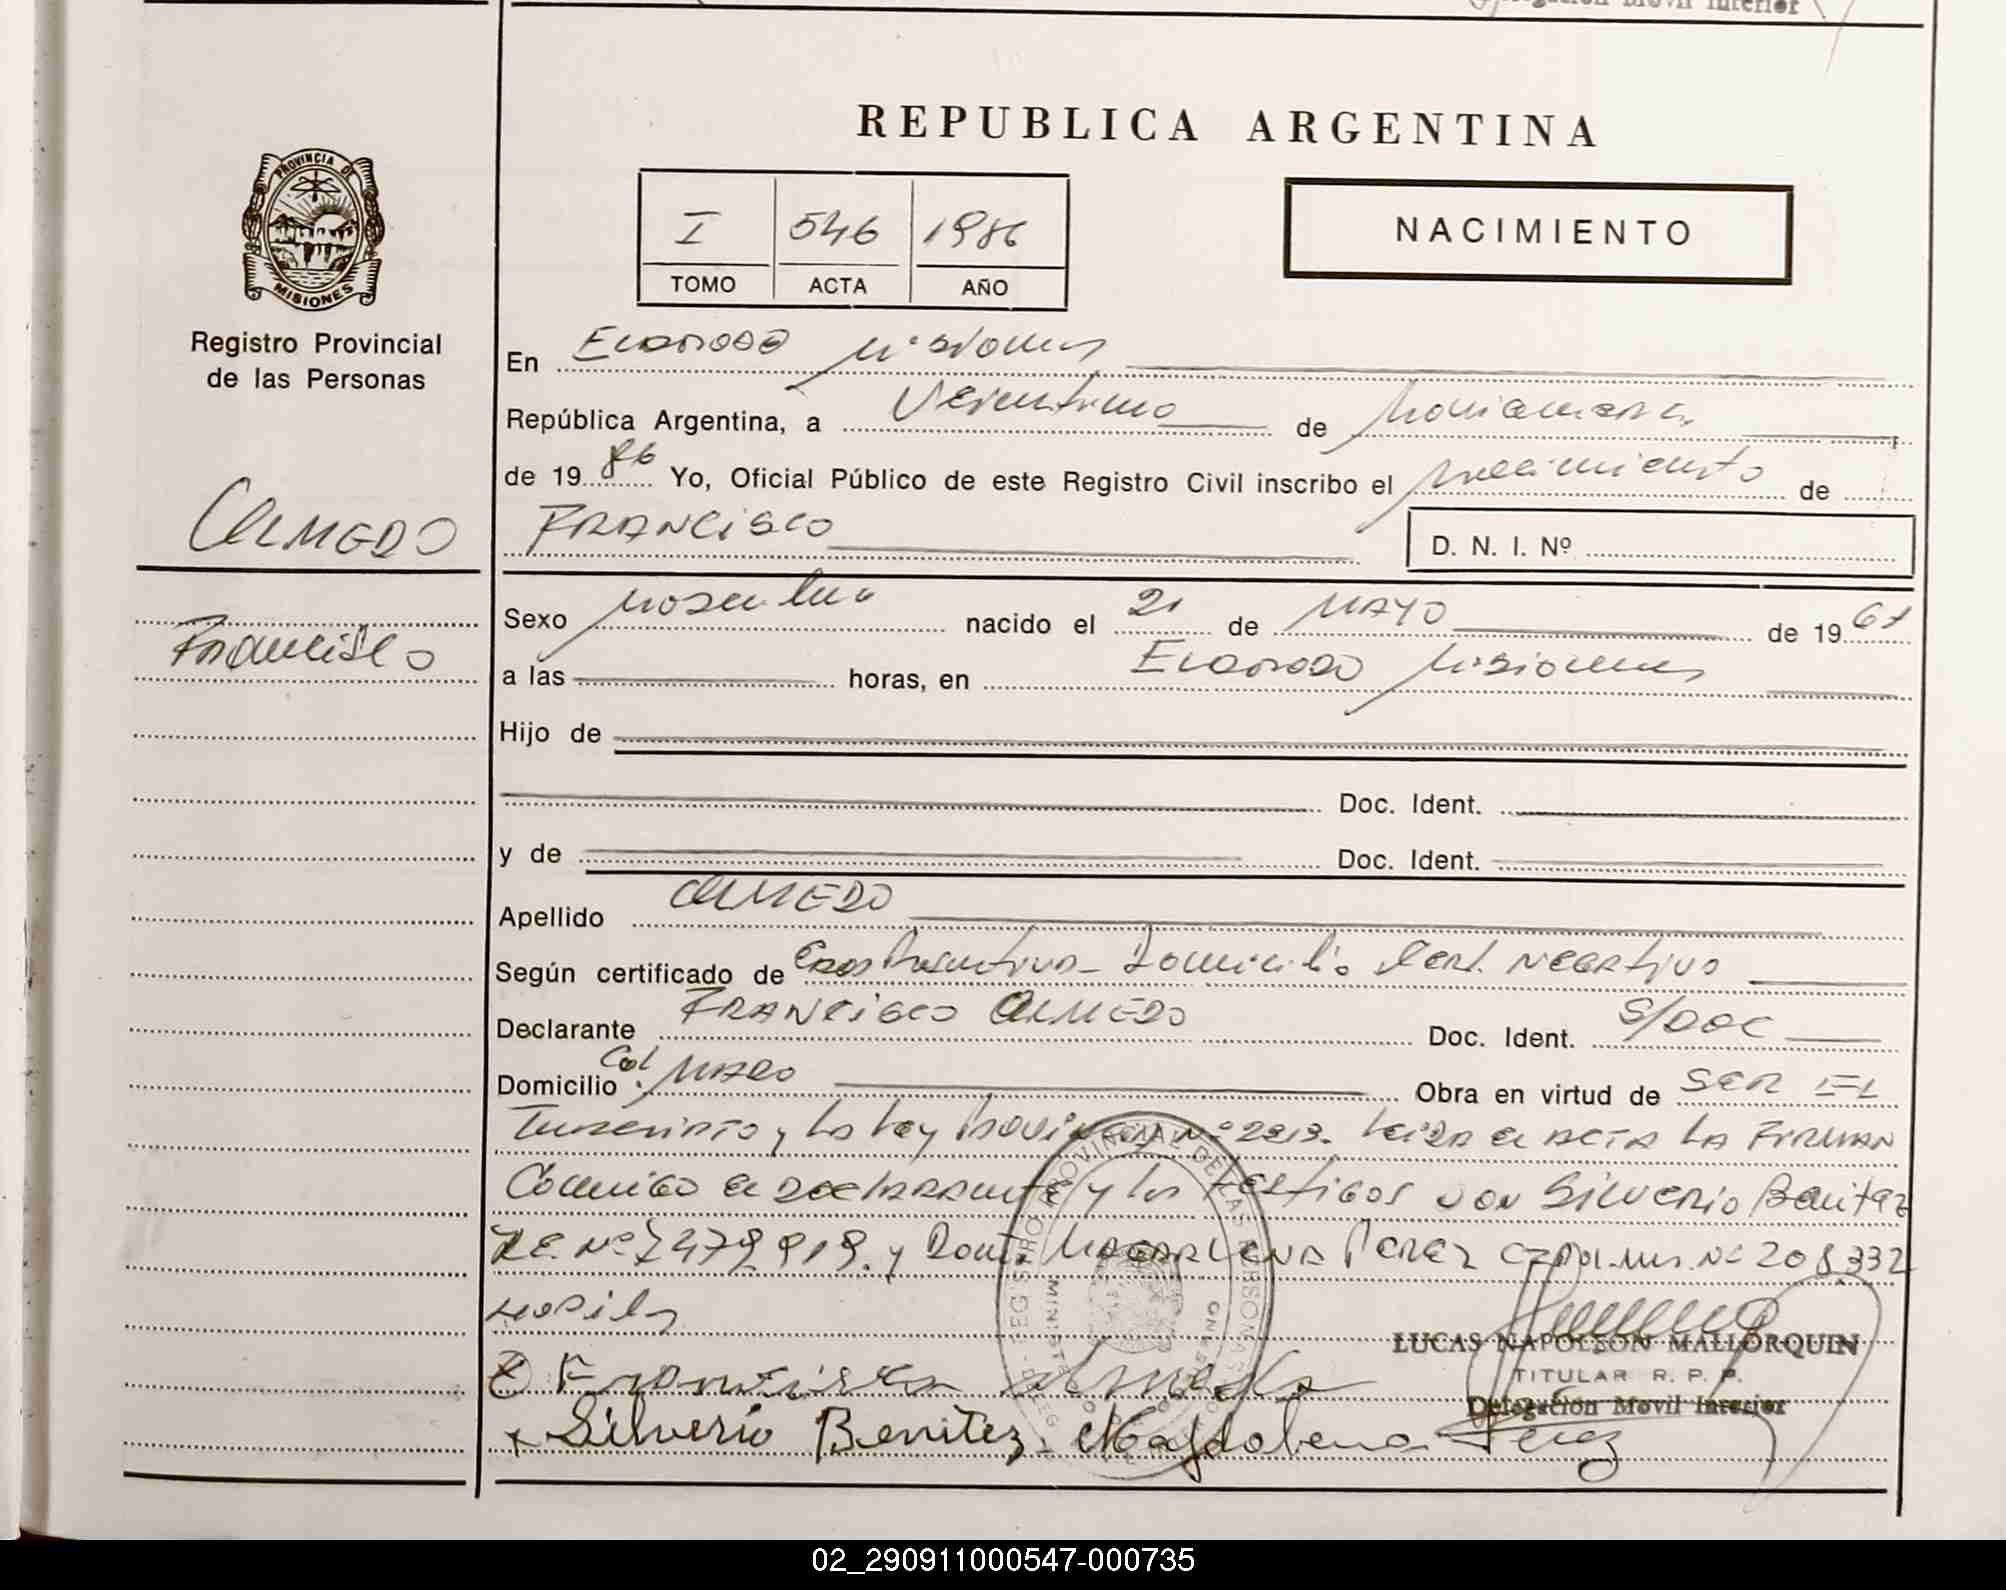 Delegación Movil Interior
REPUBLICA ARGENTINA
PROVINCIA DE
MISIONES
Registro Provincial
de las Personas
I 546 1986
TOMO ACTA AÑO
NACIMIENTO
En ELDORADO Misiones
República Argentina, a Veintiuno de Noviembre
de 1986 Yo, Oficial Público de este Registro Civil inscribo el nacimiento de
OLMEDO
FRANCISCO
D. N. I. Nº
Francisco
Sexo Masculino nacido el 21 de MAYO de 1961
a las horas, en ELDORADO Misiones
Hijo de
Doc. Ident.
y de Doc. Ident.
Apellido OLMEDO
Según certificado de Domicilio Cert. NEGATIVO
Declarante FRANCISCO OLMEDO Doc. Ident. S/DOC
Domicilio Col. MADO Obra en virtud de SER EL
Inscripto y la Ley Provincial Nº Leida el ACTA LA FIRMAN
Conmigo el DECLARANTE y los TESTIGOS DON Silverio Benitez
y Doña MAGDALENA Perez Nº 208.332
LUCAS NAPOLEON MALLORQUIN
TITULAR R. P. P.
Delegación Movil Interior
Francisco Olmedo
x Silverio Benitez Magdalena Perez
02_290911000547-000735